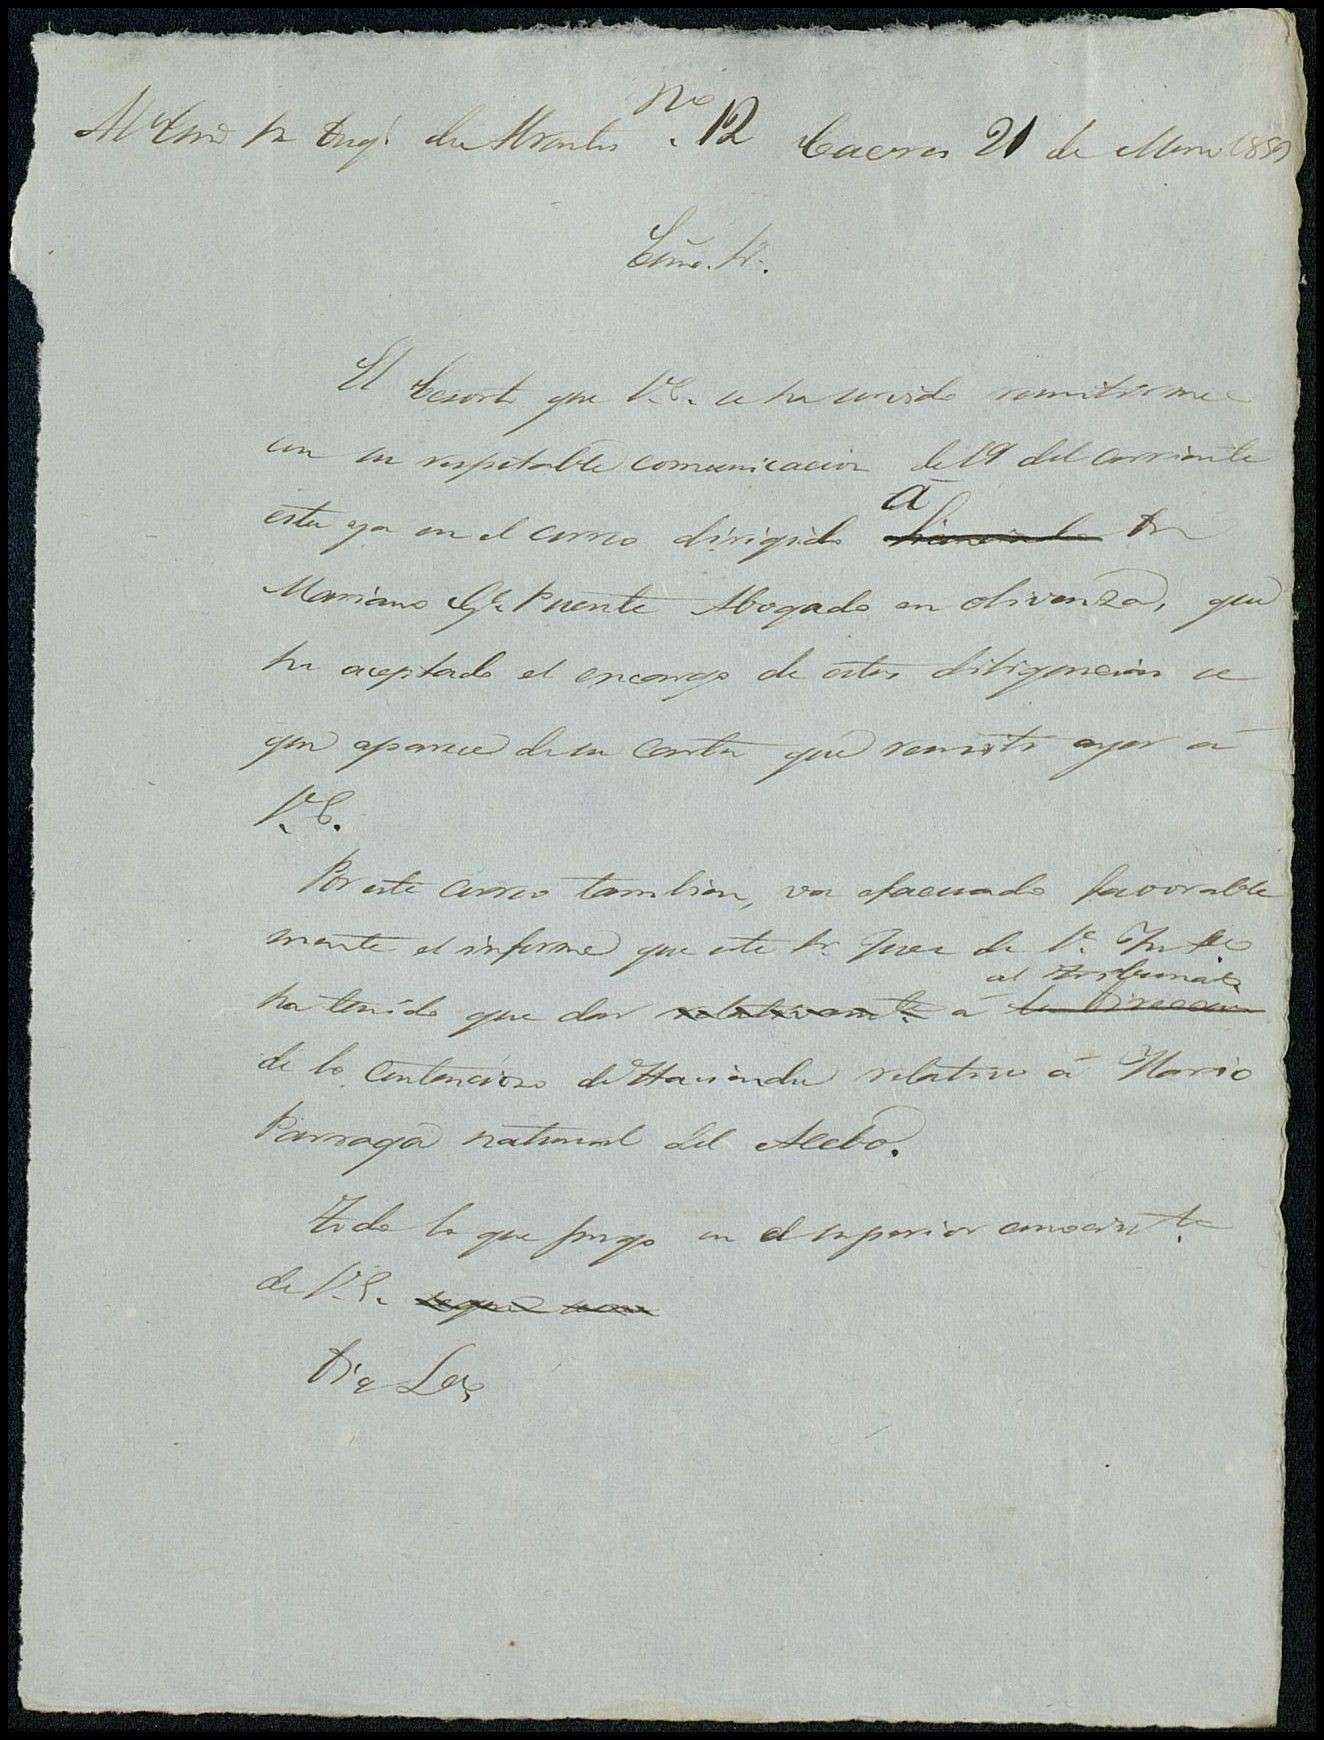 Nº 12
Al Excmo Sr Duq. de Abrantes Caceres 21 de Marzo 1889
Excmo. Sr.
El Exorto que V.E. se ha servido remitirme
con su respetable comunicacion de 19 del corriente
esta ya en el correo dirigido á Dn
Mariano Ga Puente Abogado en Olivenza, que
ha aceptado el encargo de estas diligencias se
gun aparece de su carta que remiti ayer á
V.E.
Por este correo tambien, va efacuado favorable
mente el informe que este Sr Juez de 1ª Insta
al Tribunal
ha tenido que dar relativamte á la Direccion
de lo Contencioso de Hacienda relativo á
Parraga natural del Acebo.
Todo lo que pongo en el superior conocimte
de V.E.